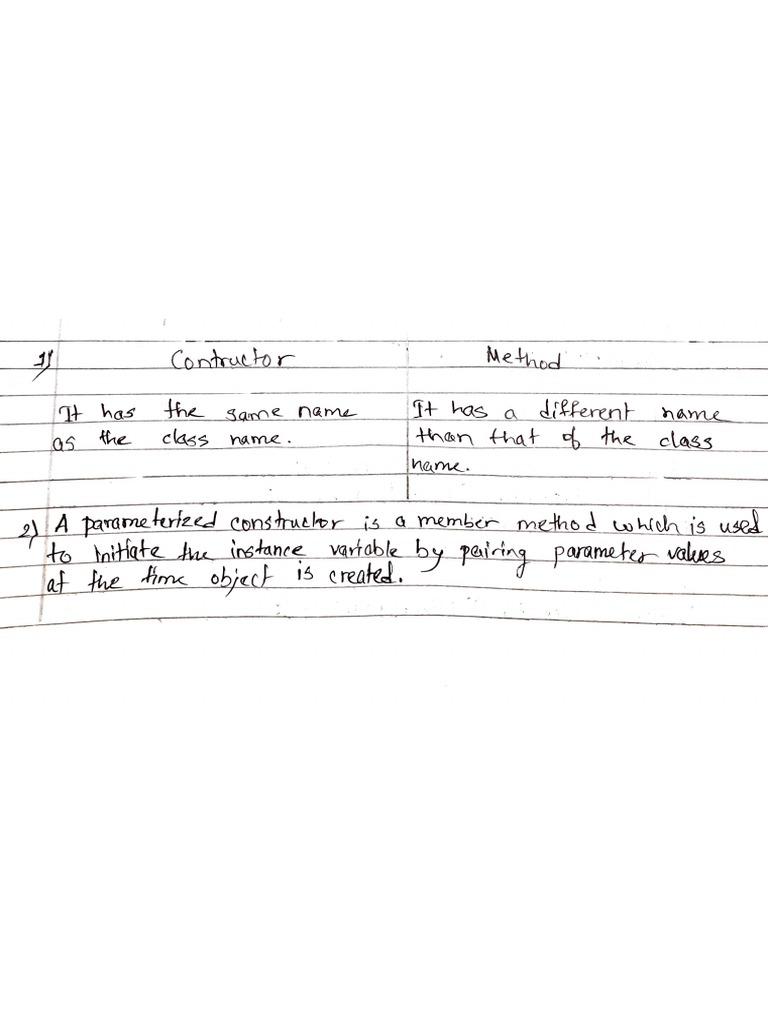 1) Contructor Method
It has the same name It has a different name
as the class name. than that of the class
name.
2) A parameterized constructor is a member method which is used
to initiate the instance variable by pairing parameter values
at the time object is created.